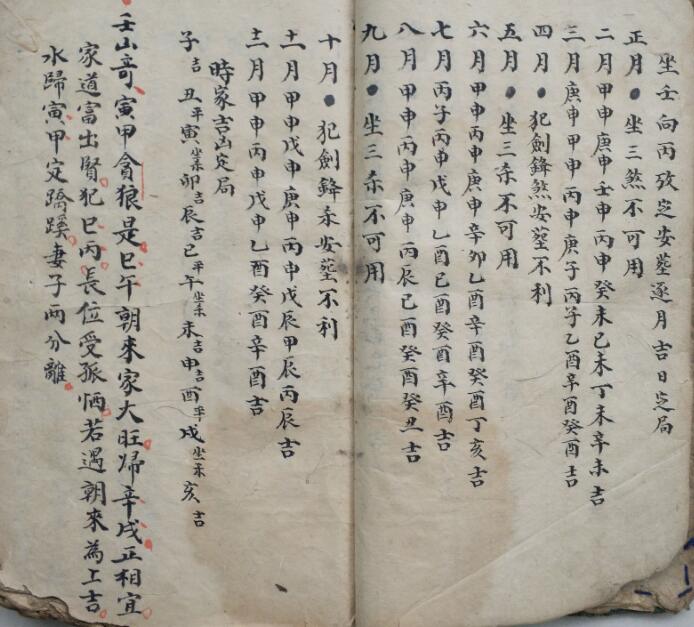 坐壬向丙攷定安塟逐月吉日定局
正月●坐三煞不可用
二月甲申庚申壬申丙申癸未己未丁未辛未吉
三月庚申甲申丙申庚子丙子乙酉辛酉癸酉吉
四月●犯劍鋒煞安塟不利
五月●坐三杀不可用
六月甲申丙申庚申辛卯乙酉辛酉癸酉丁亥吉
七月丙子丙申戊申乙酉己酉癸酉辛酉吉
八月甲申丙申庚申丙辰己酉癸酉癸丑吉
九月●坐三杀不可用
十月●犯劍鋒杀安塟不利
十一月甲申戊申庚申丙申戊辰甲辰丙辰吉
十二月甲申丙申戊申乙酉癸酉辛酉吉
時家吉凶定局
子吉丑平寅坐杀卯吉辰吉巳平午坐杀未吉申吉酉平戌坐杀亥吉
壬山奇寅甲貪狼是巳午朝來家大旺歸辛戌正相宜
家道富出賢犯巳丙長位受孤恓若遇朝來為上吉
水歸寅甲定蹺蹊妻子兩分離